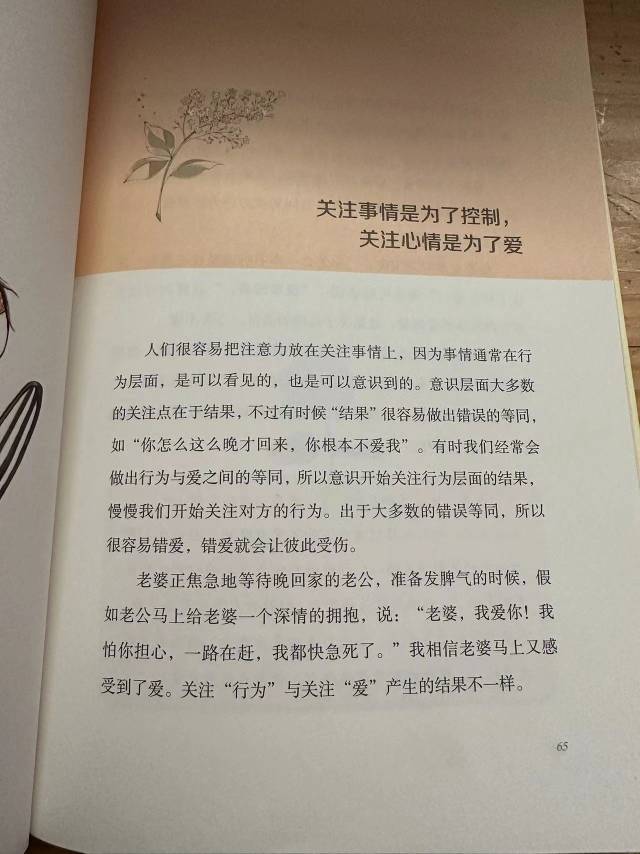 关注事情是为了控制，
关注心情是为了爱
人们很容易把注意力放在关注事情上，因为事情通常在行
为层面，是可以看见的，也是可以意识到的。意识层面大多数
的关注点在于结果，不过有时候“结果”很容易做出错误的等同，
如“你怎么这么晚才回来，你根本不爱我”。有时我们经常会
做出行为与爱之间的等同，所以意识开始关注行为层面的结果，
慢慢我们开始关注对方的行为。出于大多数的错误等同，所以
很容易错爱，错爱就会让彼此受伤。
老婆正焦急地等待晚回家的老公，准备发脾气的时候，假
如老公马上给老婆一个深情的拥抱，说：“老婆，我爱你！我
怕你担心，一路在赶，我都快急死了。”我相信老婆马上又感
受到了爱。关注“行为”与关注“爱”产生的结果不一样。
65